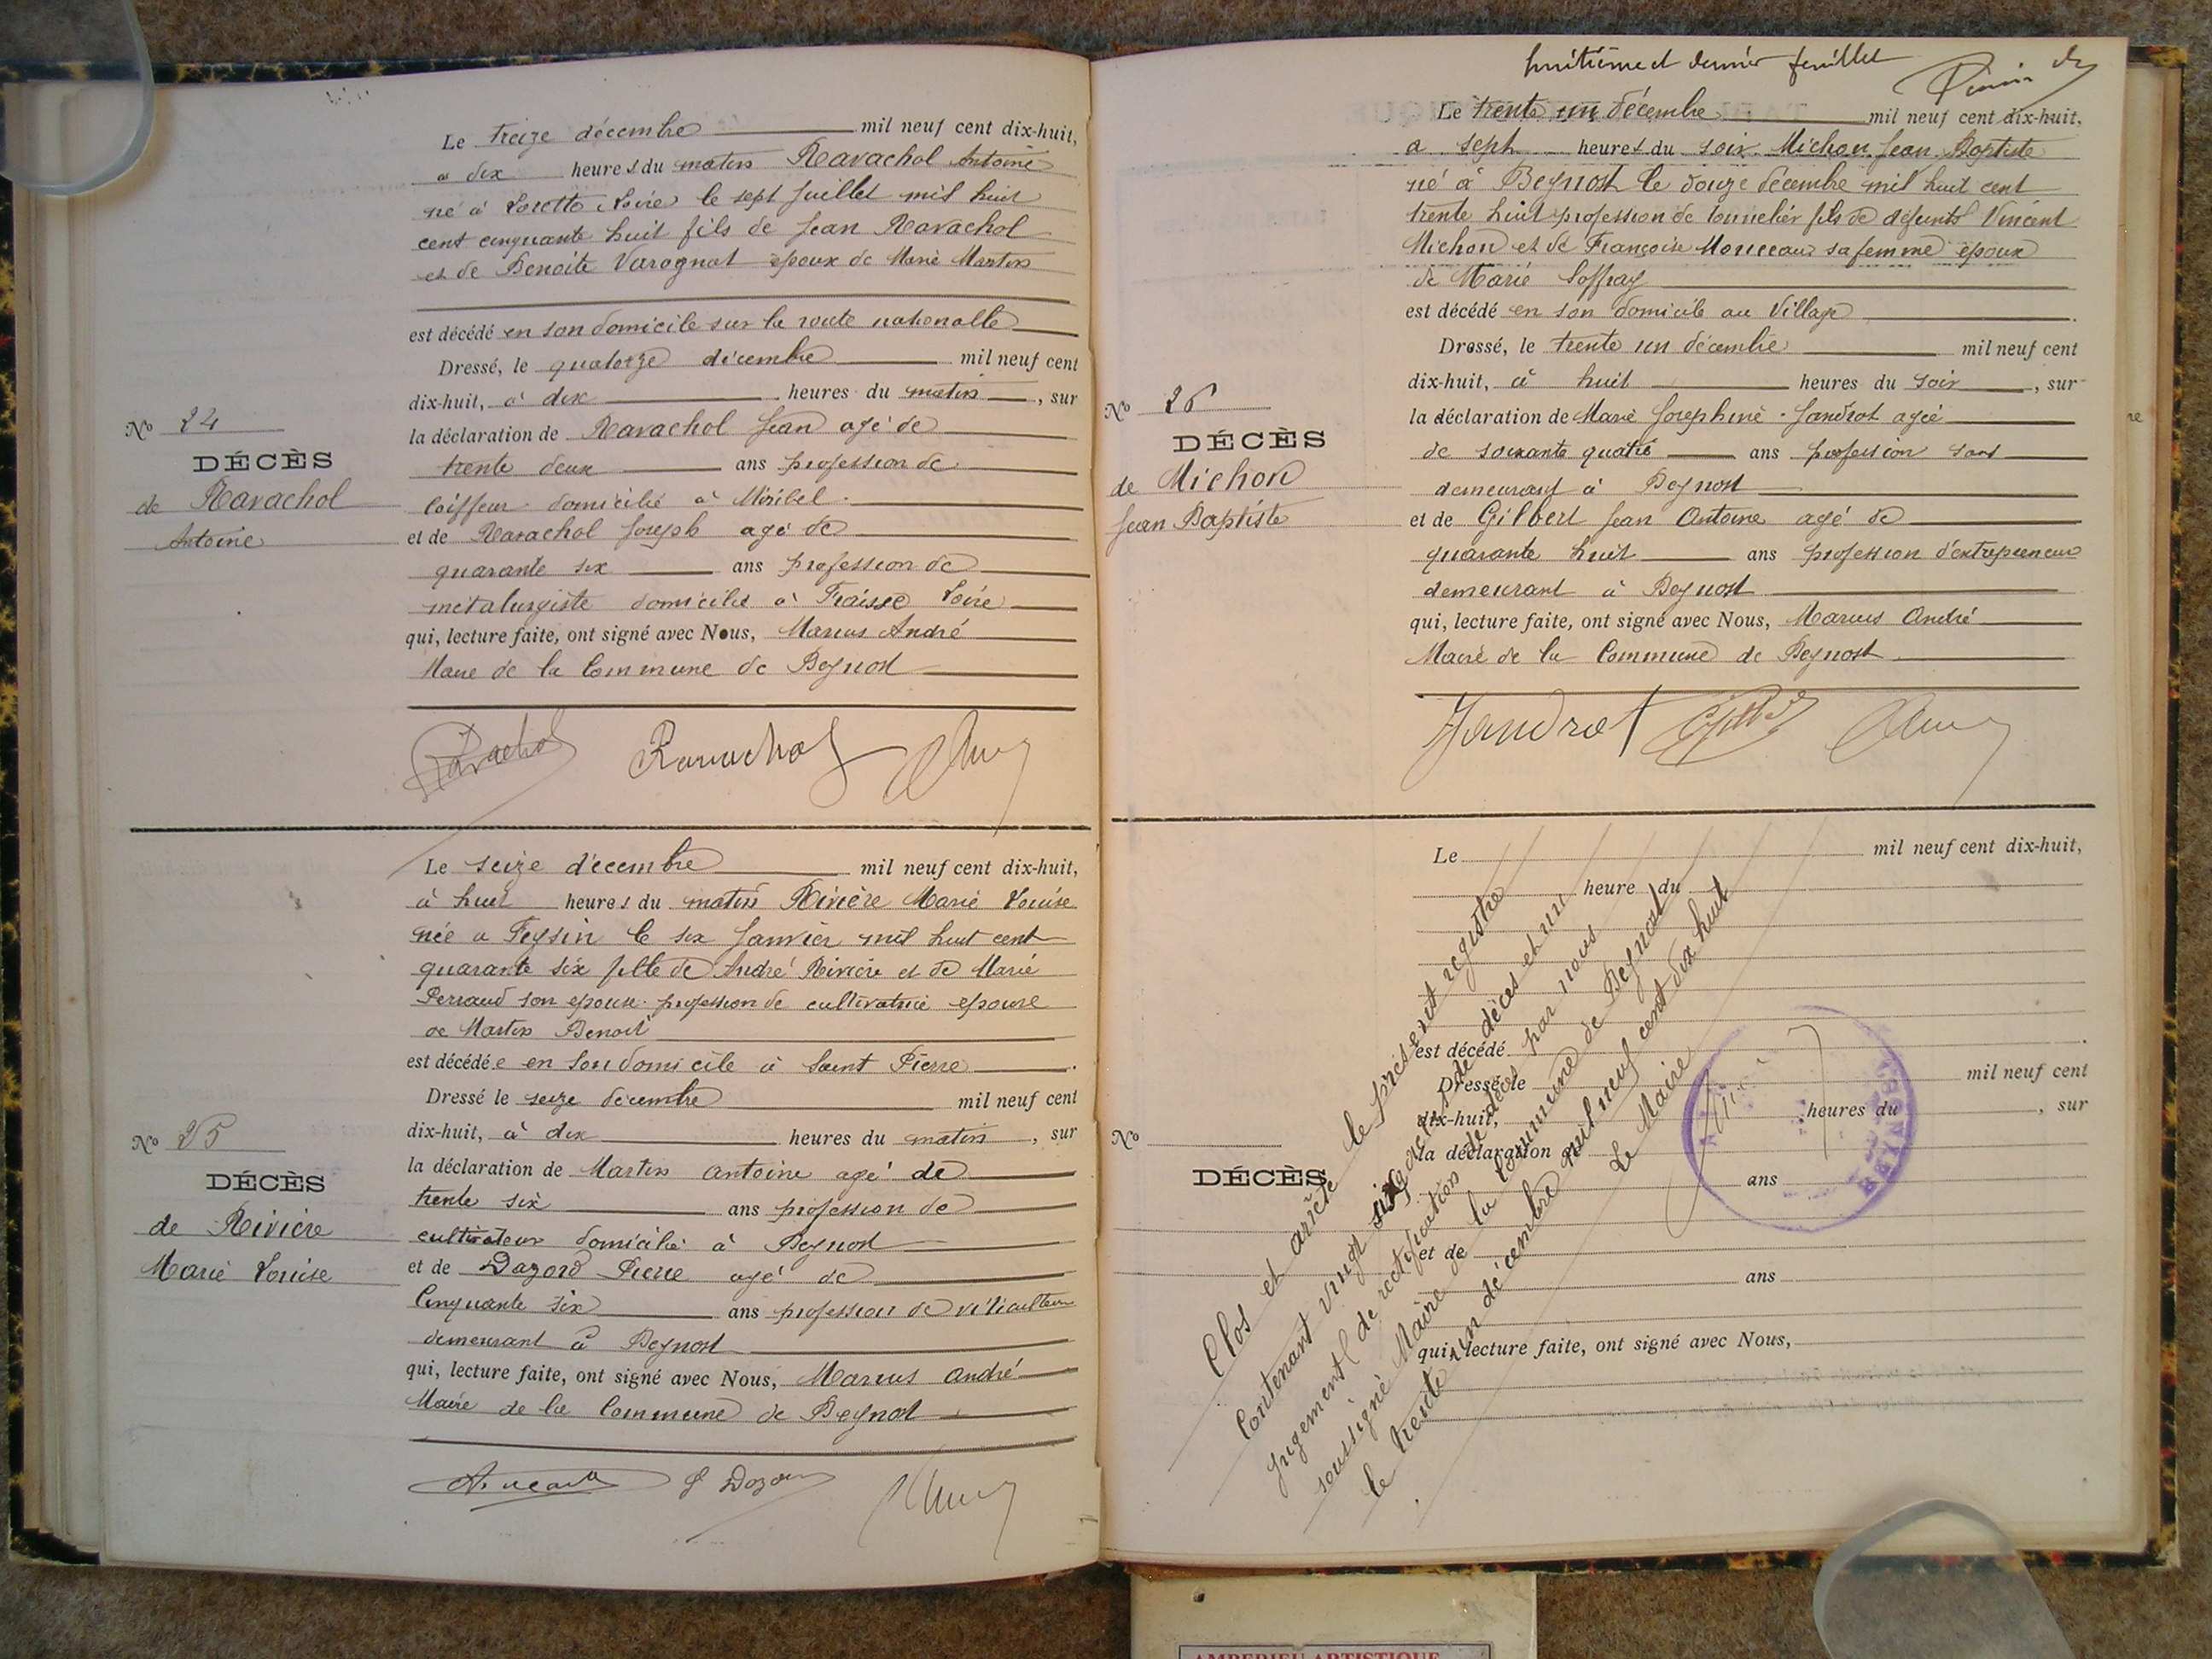 Le treize décembre mil neuf cent dix-huit,
à dix heures du matin Ravachol Antoine
né à Lorette Loire le sept juillet mil huit
cent cinquante huit fils de Jean Ravachol
et de Benoite Varagnat époux de Marie Martin
est décédé en son domicile sur la route nationalle
Dressé, le quatorze décembre mil neuf cent
dix-huit, à dix heures du matin, sur
la déclaration de Ravachol Jean agé de
trente deux ans profession de
Coiffeur domicilié à Miribel
et de Ravachol Joseph agé de
quarante six ans profession de
métalurgiste domicilié à Fraisse Loire
qui, lecture faite, ont signé avec Nous, Marcus André
Maire de la Commune de Beynost
No 24
DÉCÈS
de Ravachol
Antoine
Ravachol Ravachol
Le seize décembre mil neuf cent dix-huit,
à huit heures du matin Rivière Marie Louise
née a Feysin le six Janvier mil huit cent
quarante six fille de André Rivière et de Marie
Perraud son epouse profession de cultivatrice epouse
de Martin Benoit
est décédée en son domicile à Saint Pierre.
Dressé le seize décembre mil neuf cent
dix-huit, à dix heures du matin, sur
la déclaration de Martin Antoine agé de
trente six ans profession de
cultivateur domicilié à Beynost
et de Dazord Pierre agé de
Cinquante six ans profession de viticulteur
demeurant à Beynost
qui, lecture faite, ont signé avec Nous, Marcus André
Maire de la Commune de Beynost
No 25
DÉCÈS
de Rivière
Marie Louise
huitième et dernier feuillet
Le trente un décembre mil neuf cent dix-huit,
a sept heures du soir Michon Jean Baptiste
né à Beynost le douze décembre mil huit cent
trente huit profession de tonnelier fils de défunts Vincent
Michon et de Françoise Monceau sa femme époux
de Marie
est décédé en son domicile au Village.
Dressé, le trente un décembre mil neuf cent
dix-huit, à huit heures du soir, sur
la déclaration de Marie Josephine Jandrot agée
de soixante quatre ans profession sans
demeurant à Beynost
et de Gilbert Jean Antoine agé de
quarante huit ans profession d'entrepreneur
demeurant à Beynost
qui, lecture faite, ont signé avec Nous, Marcus André
Maire de la Commune de Beynost
No 26
DÉCÈS
de Michon
Jean Baptiste
Jandrot
Le mil neuf cent dix-huit,
heure du
est décédé.
Dressé, le mil neuf cent
dix-huit, heures du, sur
la déclaration de
ans
et de
ans
qui, lecture faite, ont signé avec Nous,
No
DÉCÈS
Clos et arrêté le présent registre
Contenant vingt six actes de décès et un
jugement de rectification de décès par nous
soussigné Maire de la Commune de Beynost
le trente un décembre mil neuf cent dix huit
Le Maire
AMBERIEU ARTISTIQUE